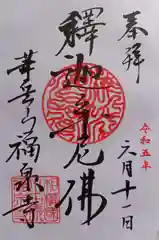 奉拝
令和五年
六月十一日
釋迦牟尼佛
華岳山福泉寺